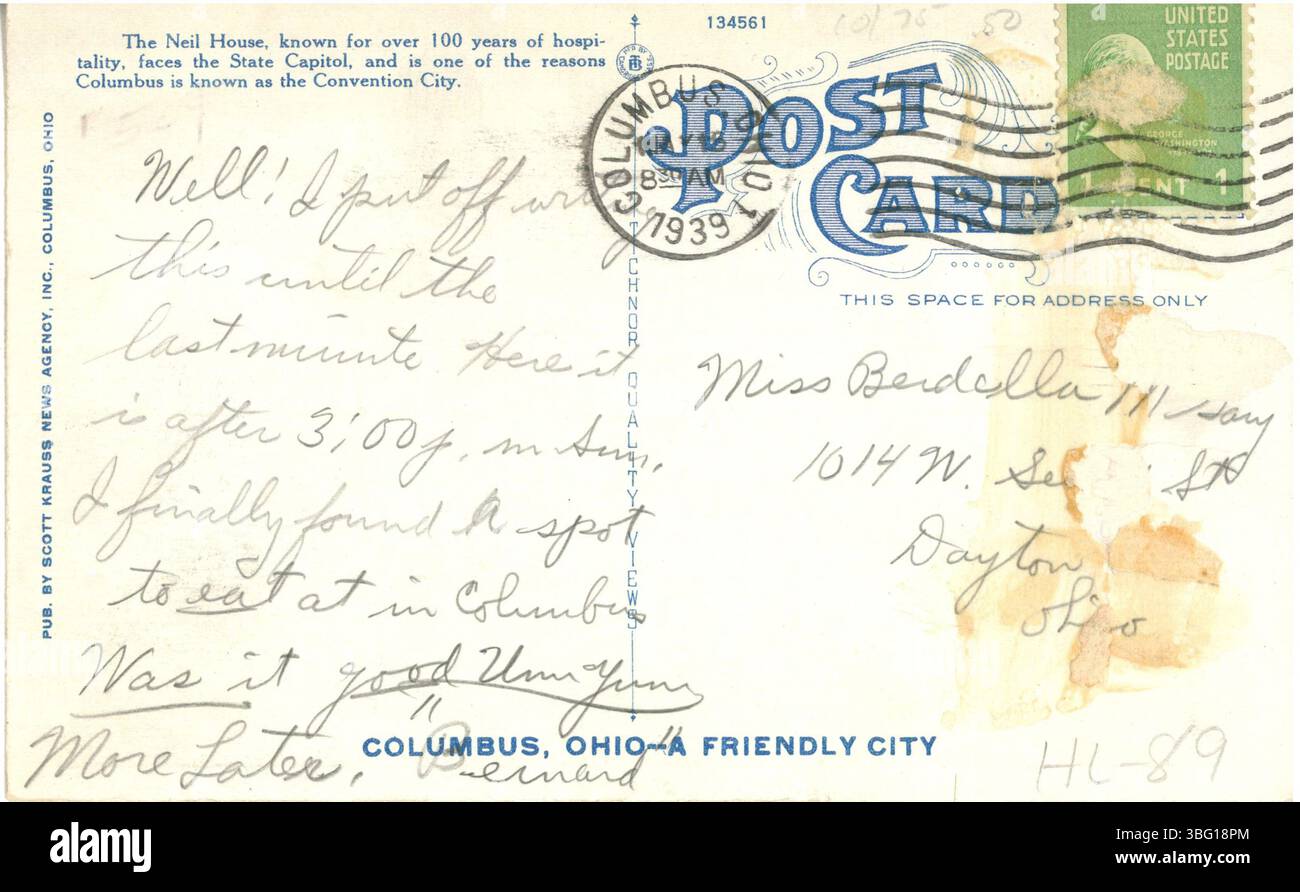 134561
10/75 .50
The Neil House, known for over 100 years of hospi-
tality, faces the State Capitol, and is one of the reasons
Columbus is known as the Convention City.
PUB. BY SCOTT KRAUSS NEWS AGENCY, INC., COLUMBUS, OHIO
Well! I put off
this until the
last minute Here it
is after 3:00 p.m Sun.
I finally found a spot
to eat at in Columbus
Was it good Umm Yum
More Later, "Bernard"
TECHNOR QUALITY VIEWS
COLUMBUS, OHIO 1
MAY 15
8 30 AM
1939
POST
CARD
UNITED
STATES
POSTAGE
GEORGE
WASHINGTON
1 CENT 1
THIS SPACE FOR ADDRESS ONLY
Miss
1014 W. St
Dayton
Ohio
COLUMBUS, OHIO—A FRIENDLY CITY
HL-89
alamy
Image ID: 3BG18PM
www.alamy.com